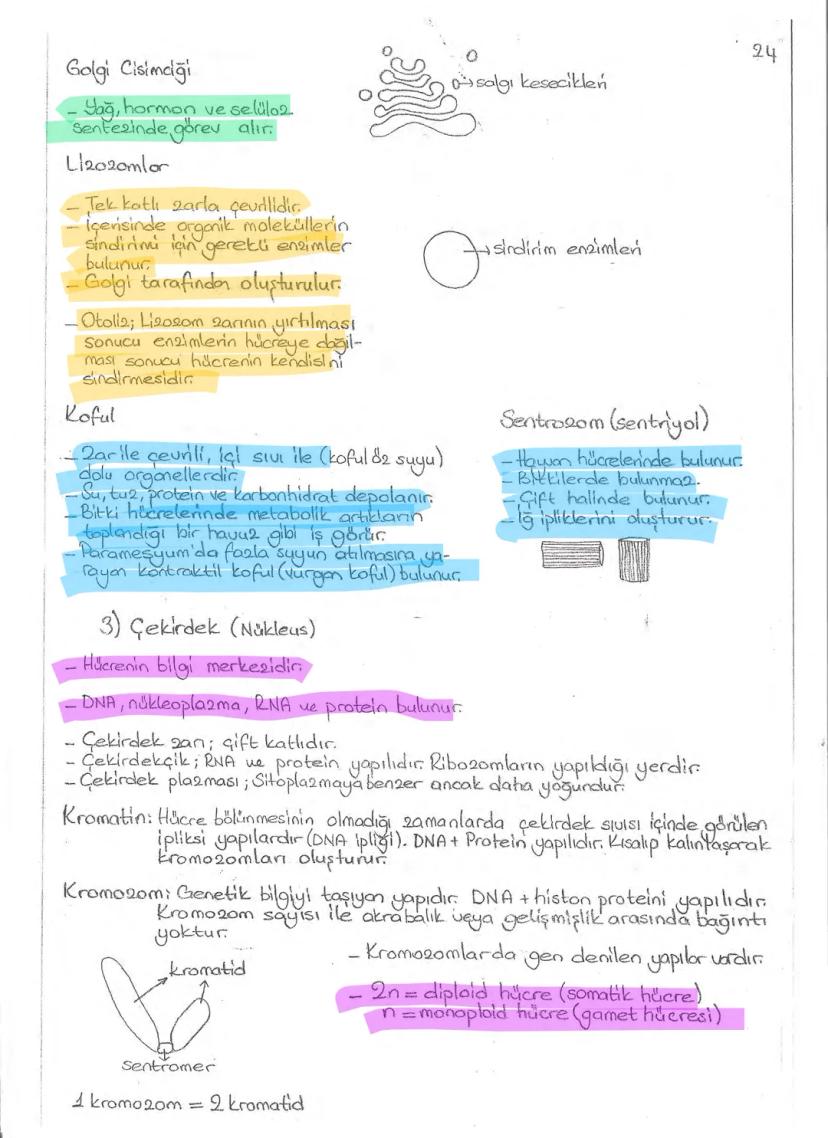 24
Golgi Cisimciği
→ salgı kesecikleri
- Yağ, hormon ve selüloz
sentezinde görev alır.
Lizozomlar
- Tek katlı zarla çevrilidir.
- İçerisinde organik moleküllerin
sindirimi için gerekli enzimler
bulunur.
→ sindirim enzimleri
- Golgi tarafından oluşturulur.
- Otoliz; Lizozom zarının yırtılması
sonucu enzimlerin hücreye dağıl-
ması sonucu hücrenin kendisini
sindirmesidir.
Koful
- Zar ile çevrili, içi sıvı ile (koful öz suyu)
dolu organellerdir.
- Su, tuz, protein ve karbonhidrat depolanır.
- Bitki hücrelerinde metabolik artıkların
toplandığı bir havuz gibi iş görür.
- Paramesyum'da fazla suyun atılmasına ya-
rayan kontraktil koful (vurgan koful) bulunur.
Sentrozom (sentriyol)
- Hayvan hücrelerinde bulunur.
- Bitkilerde bulunmaz.
- Çift halinde bulunur.
- İğ ipliklerini oluşturur.
3) Çekirdek (Nükleus)
- Hücrenin bilgi merkezidir.
- DNA, nükleoplazma, RNA ve protein bulunur.
- Çekirdek zarı; çift katlıdır.
- Çekirdekçik; RNA ve protein yapılıdır. Ribozomların yapıldığı yerdir.
- Çekirdek plazması; Sitoplazmaya benzer ancak daha yoğundur.
Kromatin: Hücre bölünmesinin olmadığı zamanlarda çekirdek sıvısı içinde görülen
ipliksi yapılardır (DNA ipliği). DNA + Protein yapılıdır. Kısalıp kalınlaşarak
kromozomları oluşturur.
Kromozom: Genetik bilgiyi taşıyan yapıdır. DNA + histon proteini yapılıdır.
Kromozom sayısı ile akrabalık veya gelişmişlik arasında bağıntı
yoktur.
- Kromozomlarda gen denilen yapılar vardır.
kromatid
- 2n = diploid hücre (somatik hücre)
n = monoploid hücre (gamet hücresi)
sentromer
1 kromozom = 2 kromatid